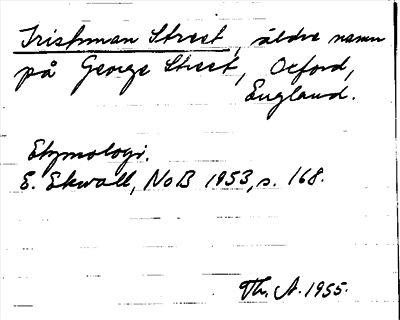 Irishman Street, äldre namn
på George Street, Oxford,
England.
Etymologi.
E. Ekwall, NoB 1953, s. 168.
Th. A. 1955.